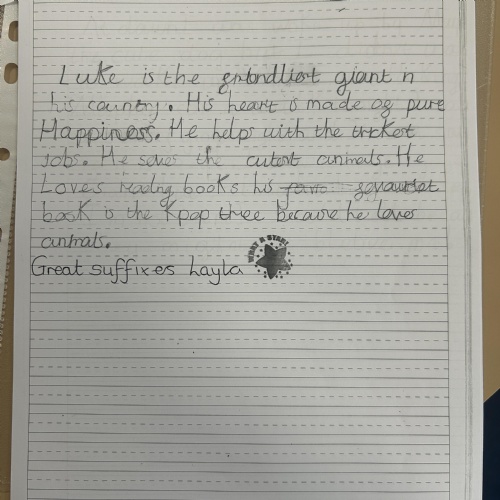 Luke is the grendliest giant n
his country. His heart is made og pure
Happiness. He helps with the trickest
Jobs. He saves the cutest animals. He
Loves reading books his favo
book is the Kpop three because he loves
animals.
Great suffixes Layla
WHAT A STAR!